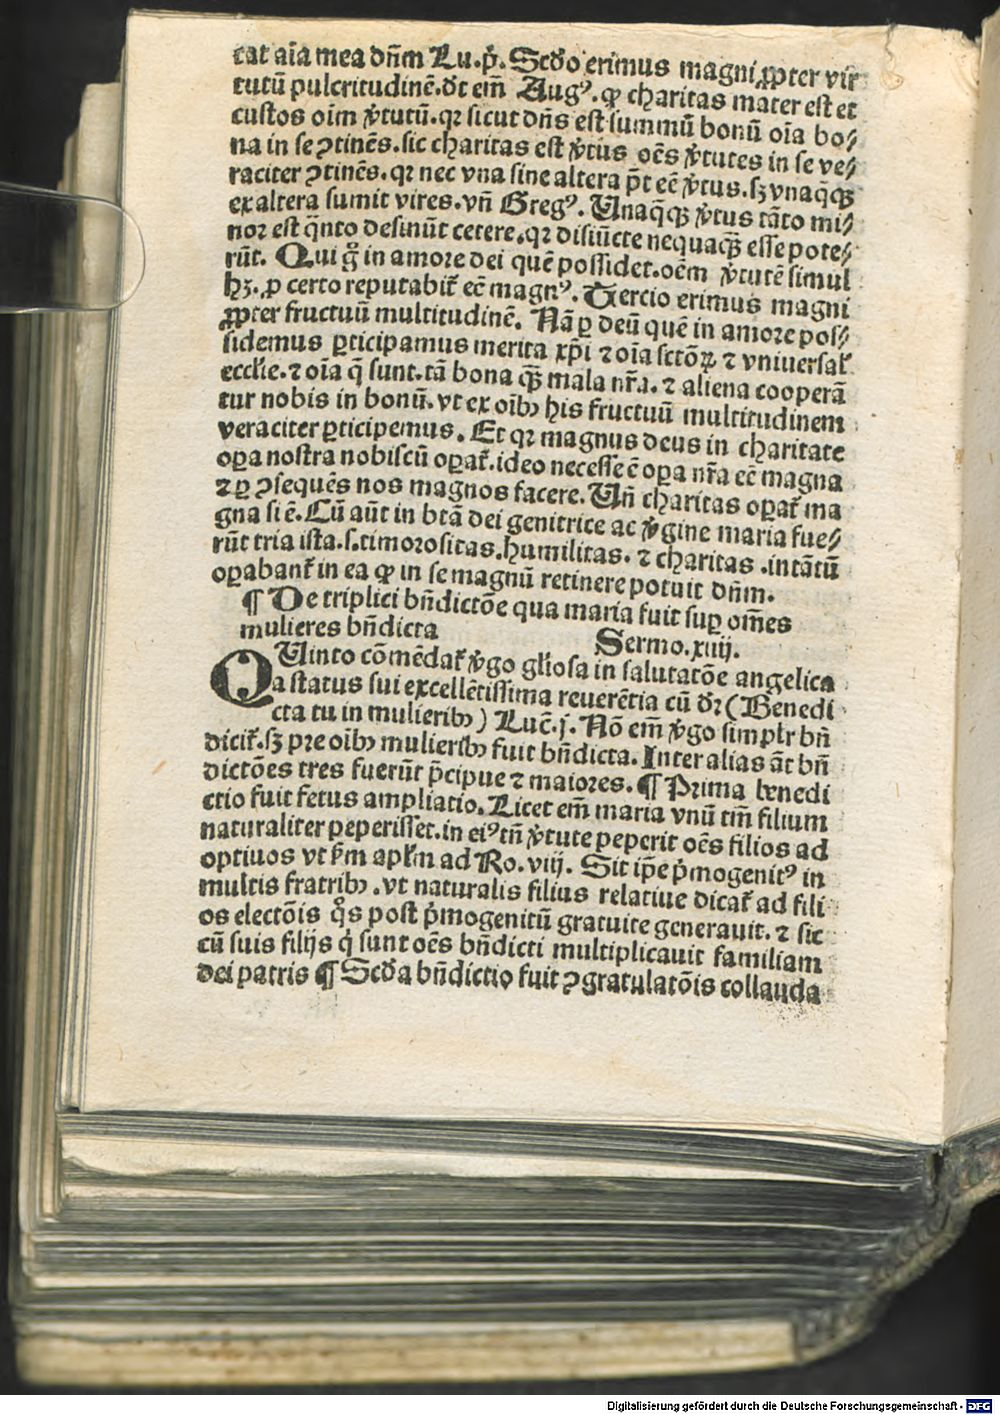 tat aīa mea dn̄m Lu.p̄. Scd̄o erimus magni ꝓpter vir
tutū pulcritudinē.dt̄ em̄ Augꝰ.ꝙ charitas mater est et
custos oīm v̄tutū.qꝛ sicut dn̄s est summū bonū oīa bo⸗
na in se ꝯtinēs.sic charitas est v̄tus oēs v̄tutes in se ve⸗
raciter ꝯtinēs.qꝛ nec vna sine altera p̄t eē v̄tus.sꝫ vnaq̄qꝫ
ex altera sumit vires.vn̄ Gregꝰ. Unaq̄qꝫ v̄tus tāto mi⸗
noꝛ est q̄nto desinūt cetere.qꝛ disiūcte nequaqꝫ esse pote⸗
rūt. Qui gͦ in amoꝛe dei quē possidet.oēm v̄tutē simul
hꝫ.ꝓ certo reputabit̄ eē magnꝰ. Tercio erimus magni
ꝓpter fructuū multitudinē. Nā ꝑ deū quē in amoꝛe pos⸗
sidemus ꝑticipamus merita xp̄i ⁊ oīa sctōꝝ ⁊ vniuersal̄
eccl̄ie.⁊ oīa q̄ sunt.tā bona qꝫ mala nr̄a.⁊ aliena cooperā
tur nobis in bonū.vt ex oībꝰ his fructuū multitudinem
veraciter ꝑticipemus. Et qꝛ magnus deus in charitate
oꝑa nostra nobiscū oꝑat̄.ideo necesse ē oꝑa nr̄a eē magna
⁊ ꝑ ꝯsequēs nos magnos facere. Un̄ charitas oꝑat̄ ma
gna si ē. Cū aūt in btā dei genitrice ac v̄gine maria fue⸗
rūt tria ista.s.timoꝛositas.humilitas.⁊ charitas.intātū
oꝑabant̄ in ea ꝙ in se magnū retinere potuit dn̄m.
¶ De triplici bn̄dictōe qua maria fuit suꝑ om̄es
mulieres bn̄dicta Sermo.xiiij.
QUinto cōmēdat̄ v̄go gl̄iosa in salutatōe angelica
a status sui excellētissima reuerētia cū dꝛ (Benedi
cta tu in mulieribꝰ) Luc̄.j. Nō em̄ v̄go simplr̄ bn̄
dicit̄.sꝫ pre oībꝰ mulieribꝰ fuit bn̄dicta. Inter alias āt bn̄
dictōes tres fuerūt p̄cipue ⁊ maioꝛes. ¶ Prima benedi
ctio fuit fetus ampliatio. Licet em̄ maria vnū tm̄ filium
naturaliter peperisset.in eiꝰ tn̄ v̄tute peperit oēs filios ad
optiuos vt s̄m apl̄m ad Ro.viij. Sit ip̄e p̄mogenitꝰ in
multis fratribꝰ.vt naturalis filius relatiue dicat̄ ad fili
os electōis qͦs post p̄mogenitū gratuite generauit.⁊ sic
cū suis filijs q̇ sunt oēs bn̄dicti multiplicauit familiam
dei patris ¶ Scd̄a bn̄dictio fuit ꝯgratulatōis collauda
Digitalisierung gefördert durch die Deutsche Forschungsgemeinschaft - DFG